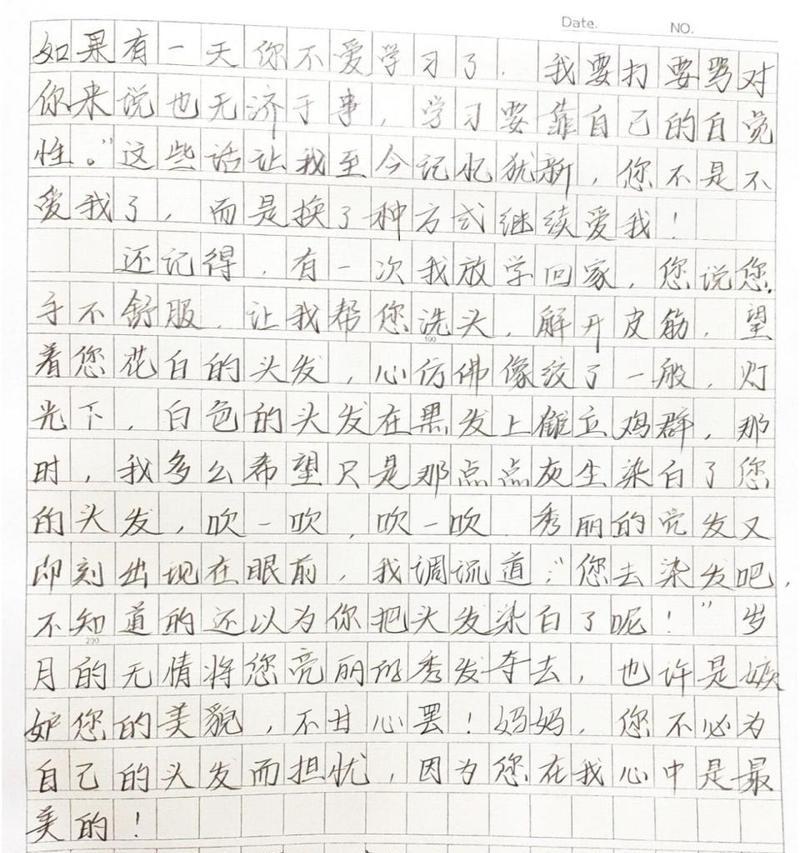 Date. NO.
如果有一天你不爱学习了，我要打要骂对
你来说也无济于事，学习要靠自己的自觉
性。”这些话让我至今记忆犹新，您不是不
爱我了，而是换了种方式继续爱我！
还记得，有一次我放学回家，您说您
手不舒服，让我帮您洗头，解开皮筋，望
100
着您花白的头发，心仿佛像绞了一般，灯
光下，白色的头发在黑发上鹤立鸡群，那
时，我多么希望只是那点点灰尘染白了您
的头发，吹一吹，吹一吹，秀丽的亮发又
即刻出现在眼前，我调侃道：“您去染发吧，
不知道的还以为你把头发染白了呢！”岁
200
月的无情将您亮丽的秀发夺去，也许是嫉
妒您的美貌，不甘心罢！妈妈，您不必为
自己的头发而担忧，因为您在我心中是最
美的！